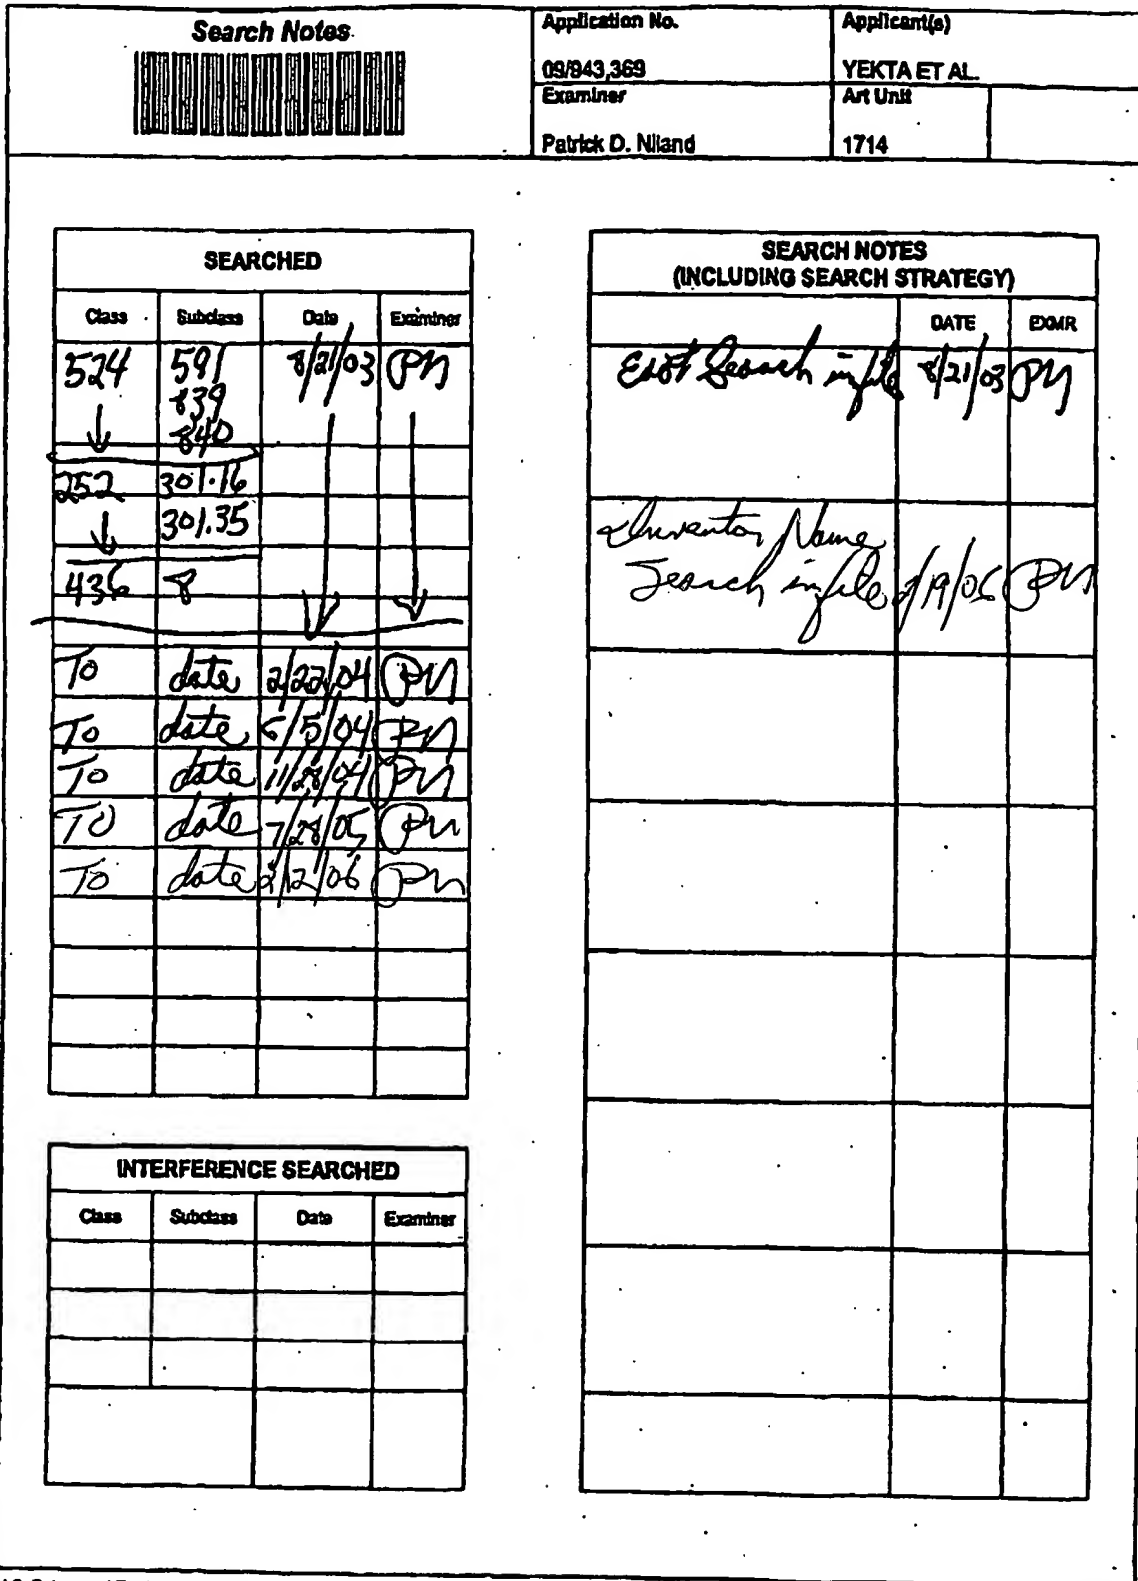 Search Notes
Application No.
Applicant(s)
09/843,369
YEKTA ET AL.
Examiner
Art Unit
Patrick D. Niland
1714
SEARCHED
Class Subclass Date Examiner
524 591 8/21/03 PN
839
840
252 301.16
301.35
436 8
To date 2/22/04 PN
To date 6/5/04 PN
To date 11/28/04 PN
To date 7/28/05 PN
To date 2/12/06 PN
INTERFERENCE SEARCHED
Class Subclass Date Examiner
SEARCH NOTES
(INCLUDING SEARCH STRATEGY)
DATE EXMR
East Search in file 8/21/03 PN
Inventor Name
Search in file /19/06 PN